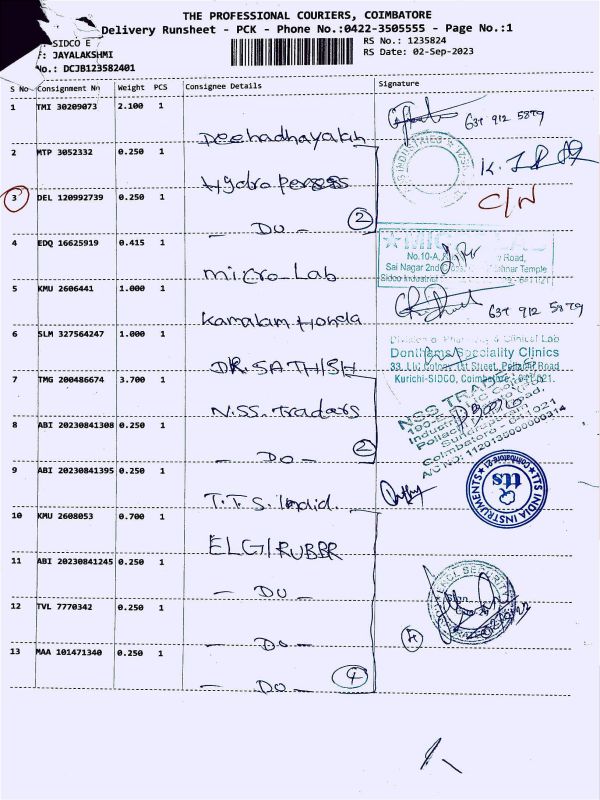 THE PROFESSIONAL COURIERS, COIMBATORE
Delivery Runsheet - PCK - Phone No.:0422-3505555 - Page No.:1
SIDCO E
RS No.: 1235824
: JAYALAKSHMI
RS Date: 02-Sep-2023
No.: DCJB123582401
S No Consignment No Weight PCS Consignee Details Signature
1 TMI 30209073 2.100 1
637 912 5879
2 MTP 3052332 0.250 1 Hydro
3 DEL 120992739 0.250 1 - Do - 2
C/N
4 EDQ 16625919 0.415 1 micro Lab
No.10-A, Road,
Sai Nagar 2nd Temple
5 KMU 2606441 1.000 1 Kamalam Honda
637 912 5879
6 SLM 327564247 1.000 1 DR. SATHISH
& Clinical Lab
Donthams Speciality Clinics
33, LIC Colony 1st Street, Pollachi Road
Kurichi-SIDCO, Coimbatore
7 TMG 200486674 3.700 1 N.S.S. Traders
NSS TRADERS
8 ABI 20230841308 0.250 1 - Do - 2
Coimbatore - 641021
9 ABI 20230841395 0.250 1 T.T.S. India.
TTS INDIA INSTRUMENTS
tts
10 KMU 2608053 0.700 1 ELGI RUBBR
11 ABI 20230841245 0.250 1 - Do -
SECURITY
12 TVL 7770342 0.250 1 - Do -
4
13 MAA 101471340 0.250 1 - Do - 4